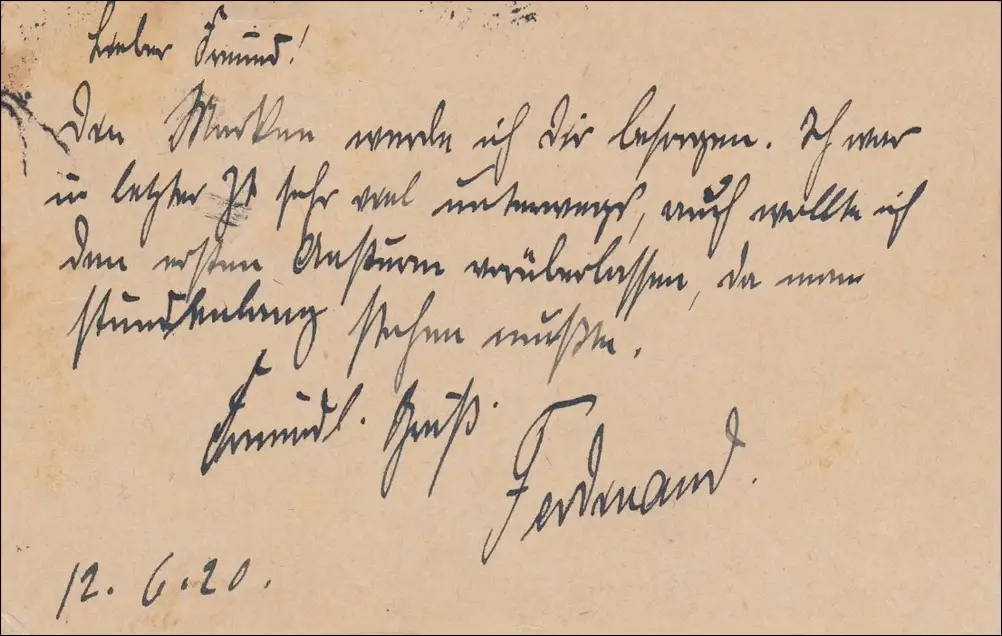 Lieber Freund!
Den Marken werde ich Dir besorgen. Ich war
in letzter Zt sehr viel unterwegs, auch wollte ich
den ersten Ansturm vorüberlassen, da man
stundenlang stehen mußte.
Freundl. Gruß.
Ferdinand.
12. 6. 20.